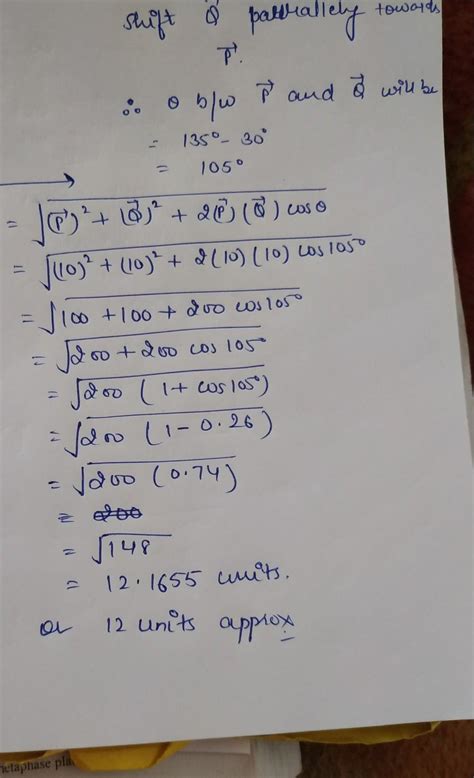 shift Q⃗ parallely towards
P⃗.
∴ θ b/w P⃗ and Q⃗ will be
= 135° - 30°
= 105°
= √(P⃗)² + (Q⃗)² + 2(P⃗)(Q⃗) cosθ
= √(10)² + (10)² + 2(10)(10) cos105°
= √100 + 100 + 200 cos105°
= √200 + 200 cos 105°
= √200 (1 + cos105°)
= √200 (1 - 0.26)
= √200 (0.74)
= 200
= √148
= 12.1655 units.
or 12 units approx
etaphase pla